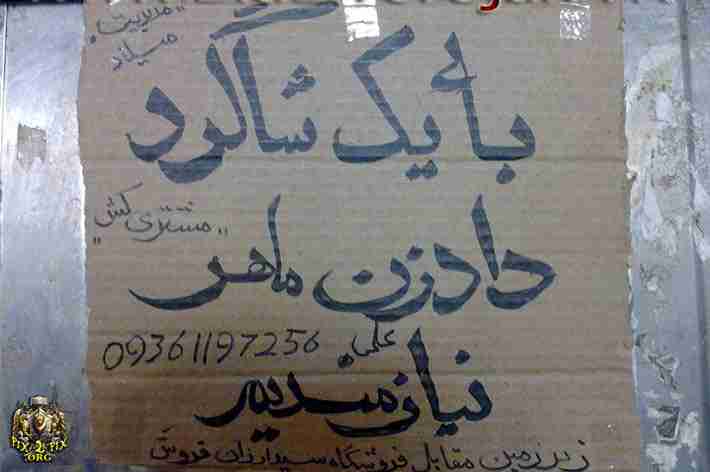 "مدیریت:
میلاد"
بـ ٔ یک شاگرد
"مشتری کش"
دادزن ماهر
علی 09361197256
نیازمندیم
زیرزمین مقابل فروشگاه سید ارزان فروش
PIX2PIX
.ORG